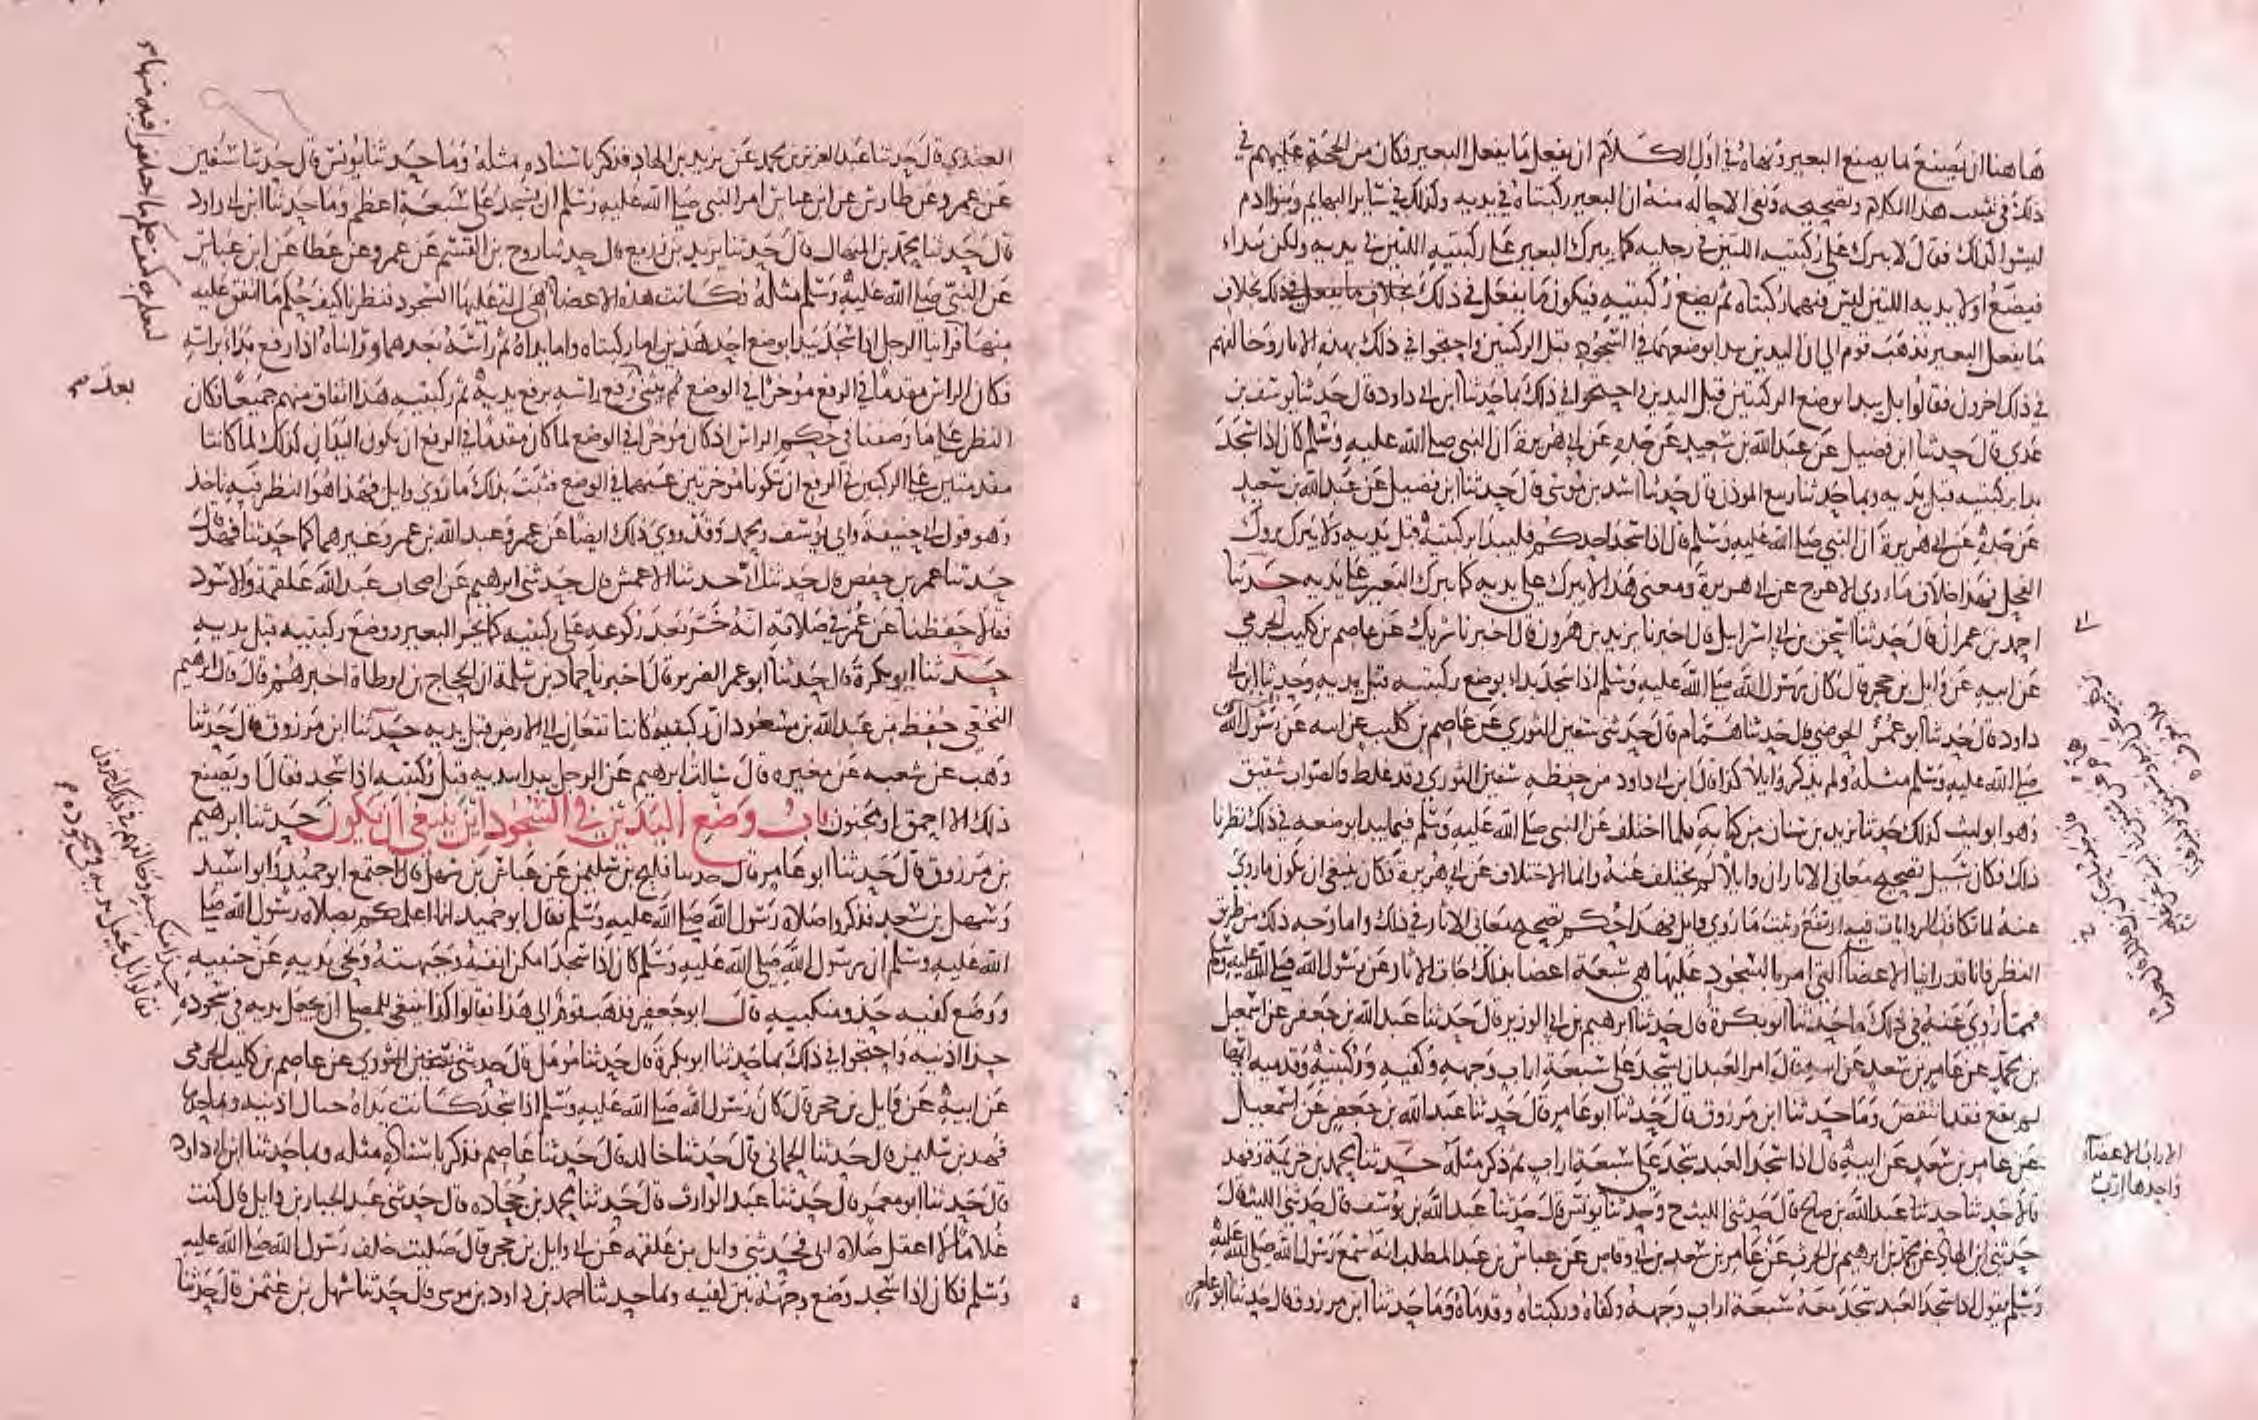 هاهنا ان يصنع ما يصنع البعير ونهاه في اول الكلام ان يفعل ما يفعل البعير وكان من الحجة عليهم في
ذلك في تثبيت هذا الكلام وتصحيحه ونفي الاحالة منه ان البعير ركبتاه في يديه وكذلك في سائر البهائم وبنوا ادم
ليسوا كذلك فقال لا يبرك على ركبتيه اللتين في رجليه كما يبرك البعير على ركبتيه اللتين في يديه ولكن يبداء
فيضع اولا يديه اللتين ليس فيهما ركبتاه ثم يضع ركبتيه فيكون ما يفعل في ذلك بخلاف
ما يفعل البعير فذهب قوم الى ان اليدين يبدا بوضعهما في السجود قبل الركبتين واحتجوا في ذلك بهذه الاثار وخالفهم
في ذلك اخرون فقالوا بل يبدا بوضع الركبتين قبل اليدين واحتجوا في ذلك بما حدثنا ابن ابي داود قال حدثنا يوسف بن
عدي قال حدثنا ابن فضيل عن عبد الله بن سعيد عن جده عن ابي هريرة ان النبي صلى الله عليه وسلم كان اذا سجد
بدا بركبتيه قبل يديه وبما حدثنا ربيع الموذن قال حدثنا اسد بن موسى قال حدثنا ابن فضيل عن عبد الله بن سعيد
عن جده عن ابي هريرة ان النبي صلى الله عليه وسلم قال اذا سجد احدكم فليبدا بركبتيه قبل يديه ولا يبرك بروك
الفحل فهذا خلاف ما روى الاعرج عن ابي هريرة ومعنى هذا لا يبرك على يديه كما يبرك البعير على يديه حدثنا
احمد بن عمران قال حدثنا اسحق بن ابي اسرائيل قال اخبرنا يزيد بن هرون قال اخبرنا شريك عن عاصم بن كليب الجرمي
عن ابيه عن وائل بن حجر قال كان رسول الله صلى الله عليه وسلم اذا سجد بداء بوضع ركبتيه قبل يديه وحدثنا ابن ابي
داود قال حدثنا ابو عمر الحوضي قال حدثنا همام قال حدثني سفين الثوري عن عاصم بن كليب عن ابيه عن رسول الله
صلى الله عليه وسلم مثله ولم يذكر وايلا كذا قال ابن ابي داود من حفظه سفين الثوري وقد غلط والصواب شقيق
وهو ابو ليث كذلك حدثنا يزيد بن سنان من كتابه فلما اختلف عن النبي صلى الله عليه وسلم فيما يبدا بوضعه في ذلك نظرنا
ذلك فكان سبيل تصحيح معاني الاثار ان وايلا لم يختلف عنه وانما الاختلاف عن ابي هريرة فكان ينبغي ان يكون ما روي
عنه لما تكافت الروايات فيه ارتفع وثبت ما روى وايل فهذا حكم تصحيح معاني الاثار في ذلك واما وجه ذلك من طريق
النظر فانا قد راينا الاعضاء التي امر بالسجود عليها هي سبعة اعضا بذلك جات الاثار عن رسول الله صلى الله عليه وسلم
فمما روي عنه في ذلك ما حدثنا ابو بكرة قال حدثنا ابرهيم بن ابي الوزير قال حدثنا عبد الله بن جعفر عن اسمعيل
بن محمد عن عامر بن سعد عن ابيه قال امر العبد ان يسجد على سبعة اراب وجهه وكفيه وركبتيه وقدميه ايها
لم يقع فقد انتقص وما حدثنا ابن مرزوق قال حدثنا ابو عامر قال حدثنا عبد الله بن جعفر عن اسمعيل
عن عامر بن سعد عن ابيه قال اذا سجد العبد سجد على سبعة اراب ثم ذكر مثله حدثنا محمد بن خزيمة وفهد
قالا حدثنا عبد الله بن صالح قال حدثني الليث ح وحدثنا يونس قال حدثنا عبد الله بن يوسف قال حدثني الليث قال
حدثني ابن الهاد عن محمد بن ابرهيم بن الحرث عن عامر بن سعد بن ابي وقاص عن عباس بن عبد المطلب انه سمع رسول الله صلى الله عليه
وسلم يقول اذا سجد العبد سجد معه سبعة اراب وجهه وكفاه وركبتاه وقدماه وما حدثنا ابن مرزوق قال حدثنا ابو عامر
الاراب الاعضاء
واحدها ارب
العقدي قال حدثنا عبد العزيز بن محمد عن يزيد بن الهاد فذكر باسناده مثله وما حدثنا يونس قال حدثنا سفين
عن عمرو عن طاوس عن ابن عباس امر النبي صلى الله عليه وسلم ان يسجد على سبعة اعظم وما حدثنا ابن ابي داود
قال حدثنا محمد بن المنهال قال حدثنا يزيد بن زريع قال حدثنا روح بن القسم عن عمرو عن عطا عن ابن عباس
عن النبي صلى الله عليه وسلم مثله فكانت هذه الاعضا هي التي عليها السجود فنظرنا كيف حكم ما اتفق عليه
منها فراينا الرجل اذا سجد يبدا بوضع احد هذين اما ركبتاه واما يداه ثم راسه بعدهما ورايناه اذا رفع بداء براسه
فكان الراس مقدما في الرفع موخرا في الوضع ثم يثني بعد رفع راسه برفع يديه ثم ركبتيه هذا اتفاق منهم جميعا فكان
النظر على ما وصفنا في حكم الراس اذ كان موخرا في الوضع لما كان مقدما في الرفع ان يكون اليدان كذلك لما كانتا
مقدمتين على الركبتين في الرفع ان تكونا موخرتين عنهما في الوضع فثبت بذلك ما روى وايل فهذا هو النظر وبه ناخذ
وهو قول ابي حنيفة وابي يوسف ومحمد وقد روي ذلك ايضا عن عمر وعبد الله بن عمر وغيرهما كما حدثنا فهد قال
حدثنا عمر بن حفص قال حدثنا ابي حدثنا الاعمش قال حدثني ابرهيم عن اصحاب عبد الله علقمة والاسود
فقالا حفظنا عن عمر في صلاته انه خر بعد ركوعه على ركبتيه كما يخر البعير ووضع ركبتيه قبل يديه
حدثنا ابو بكرة قال حدثنا ابو عمر الضرير قال اخبرنا حماد بن سلمة ان الحجاج بن ارطاة اخبرهم قال قال ابرهيم
النخعي حفظ من عبد الله بن مسعود ان ركبتيه كانتا تقعان الى الارض قبل يديه حدثنا ابن مرزوق قال حدثنا
وهب عن شعبه عن مغيره قال سالت ابرهيم عن الرجل يبدا بيديه قبل ركبتيه اذا سجد فقال او يصنع
ذلك الا احمق او مجنون باب وضع اليدين في السجود اين ينبغي ان يكون حدثنا ابرهيم
بن مرزوق قال حدثنا ابو عامر قال حدثنا فليح بن سليمن عن عباس بن سهل قال اجتمع ابو حميد وابو اسيد
وسهل بن سعد فذكروا صلاة رسول الله صلى الله عليه وسلم فقال ابو حميد انا اعلمكم بصلاة رسول الله صلى
الله عليه وسلم ان رسول الله صلى الله عليه وسلم كان اذا سجد امكن انفه وجبهته ونحى يديه عن جنبيه
ووضع كفيه حذو منكبيه قال ابو جعفر فذهب قوم الى هذا فقالوا كذا ينبغي للمصلي ان يجعل يديه في سجوده
حذا اذنيه واحتجوا في ذلك بما حدثنا ابو بكرة قال حدثنا مومل قال حدثني سفين الثوري عن عاصم بن كليب الجرمي
عن ابيه عن وايل بن حجر قال كان رسول الله صلى الله عليه وسلم اذا سجد كانت يداه حيال اذنيه وما حدثنا
فهد بن سليمن قال حدثنا الحماني قال حدثنا خالد قال حدثنا عاصم فذكر باسناده مثله وبما حدثنا ابن ابي داود
قال حدثنا ابو معمر قال حدثنا عبد الوارث قال حدثنا محمد بن جحاده قال حدثني عبد الجبار بن وايل قال كنت
غلاما لا اعقل صلاة ابي فحدثني وايل بن علقمه عن ابي وايل بن حجر قال صليت خلف رسول الله صلى الله عليه
وسلم فكان اذا سجد وضع وجهه بين كفيه وبما حدثنا احمد بن داود بن موسى قال حدثنا سهل بن عثمن قال حدثنا
بعد صح